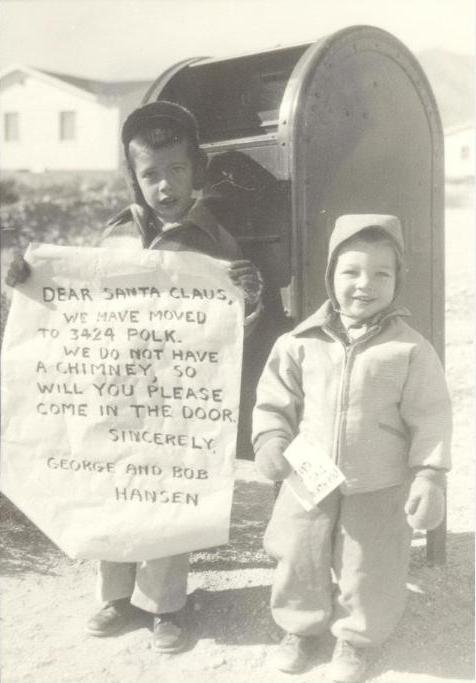 DEAR SANTA CLAUS,
WE HAVE MOVED
TO 3424 POLK.
WE DO NOT HAVE
A CHIMNEY, SO
WILL YOU PLEASE
COME IN THE DOOR.
SINCERELY,
GEORGE AND BOB
HANSEN